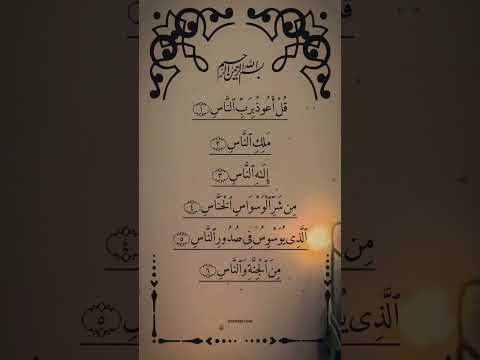 بسم الله الرحمن الرحيم
قُلْ أَعُوذُ بِرَبِّ ٱلنَّاسِ ١
مَلِكِ ٱلنَّاسِ ٢
إِلَـٰهِ ٱلنَّاسِ ٣
مِن شَرِّ ٱلْوَسْوَاسِ ٱلْخَنَّاسِ ٤
ٱلَّذِى يُوَسْوِسُ فِى صُدُورِ ٱلنَّاسِ ٥
مِنَ ٱلْجِنَّةِ وَٱلنَّاسِ ٦